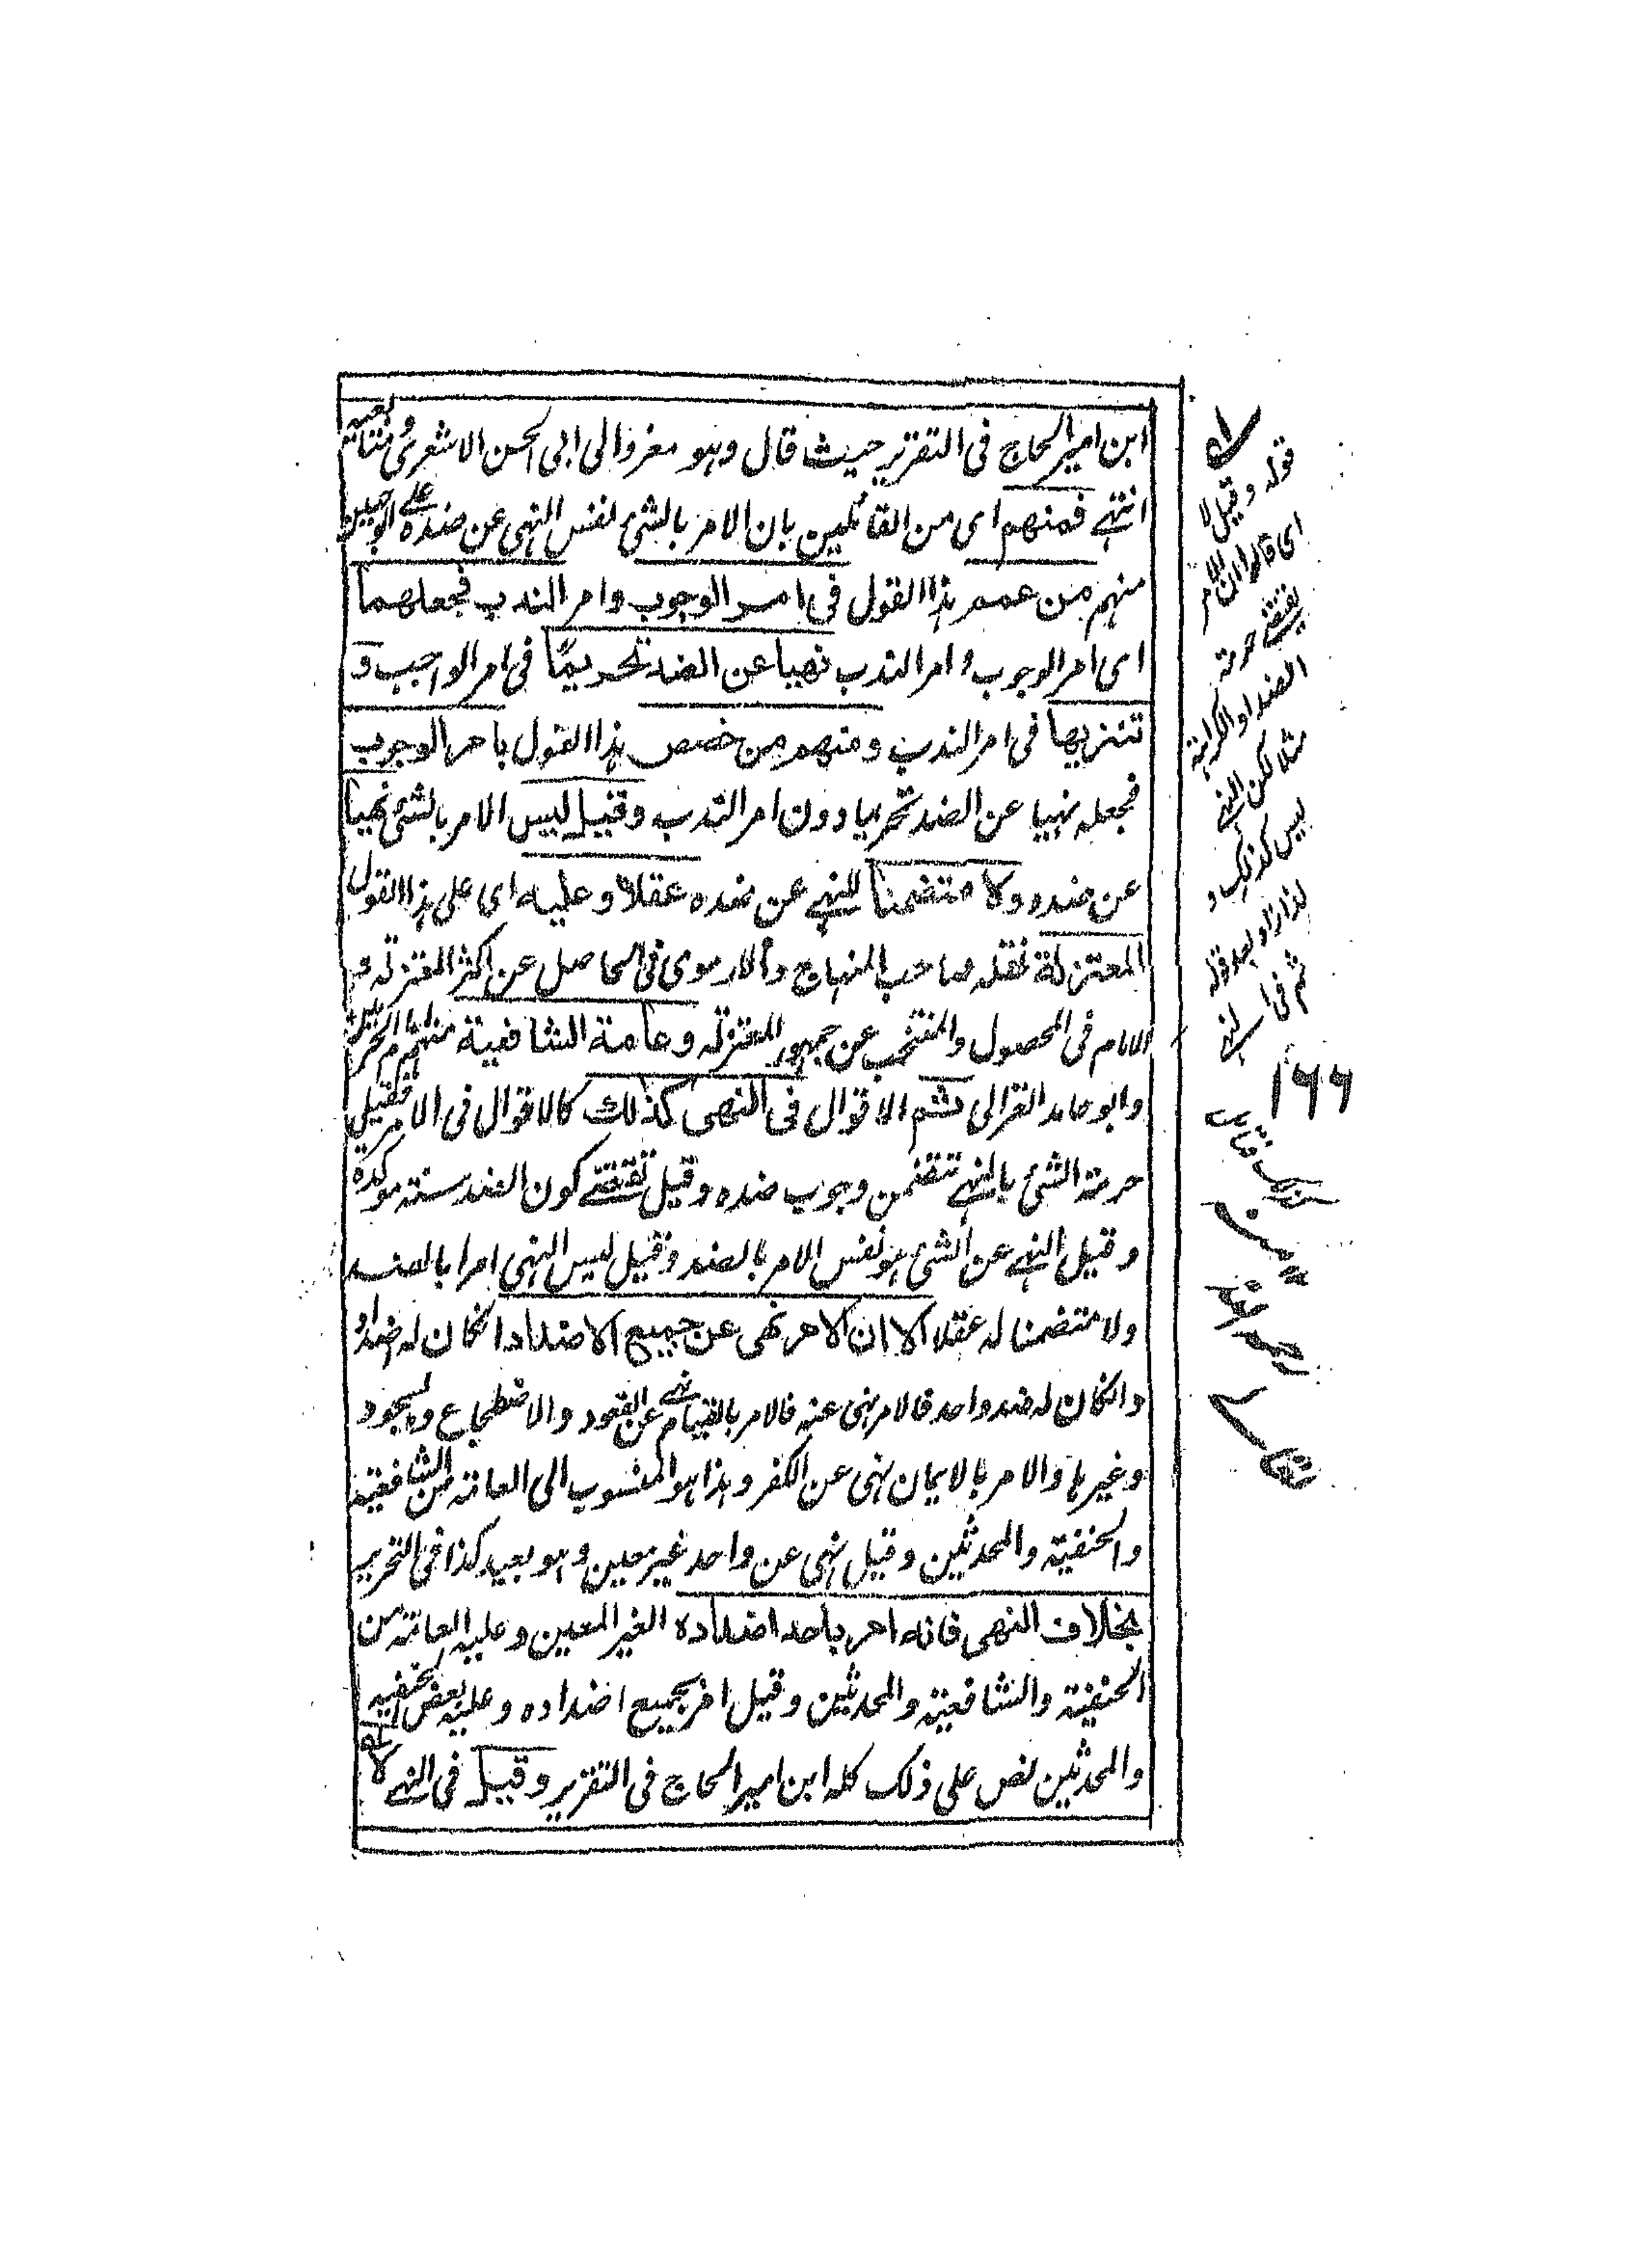 ابن امير الحاج فى التقرير حيث قال وهو معزو الى ابى الحسن الاشعرى و متابعيه
انتهى فمنهم اى من القائلين بان الامر بالشئ نفس النهى عن ضده على الوجهين
منهم من عمم هذا القول فى امر الوجوب وامر الندب فجعلهما
اى امر الوجوب و امر الندب نهيا عن الضد تحريما فى امر الواجب و
تنزيها فى امر الندب ومنهم من خصص هذا القول بامر الوجوب
فجعله نهيا عن الضد تحريما دون امر الندب وقيل ليس الامر بالشئ نهيا
عن ضده ولا متضمنا للنهى عن ضده عقلا وعليه اى على هذا القول
المعتزلة نقله صاحب المنهاج والارموى فى الحاصل عن اكثر المعتزلة و
الامام فى المحصول والمنتخب عن جمهور المعتزلة وعامة الشافعية منهم امام الحرمين
وابو حامد الغزالى ثم الاقوال فى النهى كذلك كالاقوال فى الامر فقيل
حرمة الشئ بالنهى تتضمن وجوب ضده وقيل تقتضى كون الضد سنة موكدة
وقيل النهى عن الشئ هو نفس الامر بالضد وقيل ليس النهى امرا بالضد
ولا متضمنا له عقلا الا ان الامر نهى عن جميع الاضداد انكان له اضداد
وانكان له ضد واحد فالامر نهى عنه فالامر بالقيام نهى عن القعود والاضطجاع والسجود
وغيرها والامر بالايمان نهى عن الكفر وهذا هو المنسوب الى العامة من الشافعية
والحنفية والمحدثين وقيل نهى عن واحد غير معين وهو بعيد كذا فى التحرير
بخلاف النهى فانه امر باحد اضداده الغير المعين وعليه العامة من
الحنفية والشافعية والمحدثين وقيل امر بجميع اضداده وعليه بعض الحنفية
والمحدثين نص على ذلك كله ابن امير الحاج فى التقرير وقيل فى النهى لا
قوله وقيل لا
اى قال ان الامر
يقتضى حرمة
الضد او الكراهة
مثلا لكن النهى
ليس كذلك و
لذا زاد بعد قوله
ثم فى
النهى
١٦٦